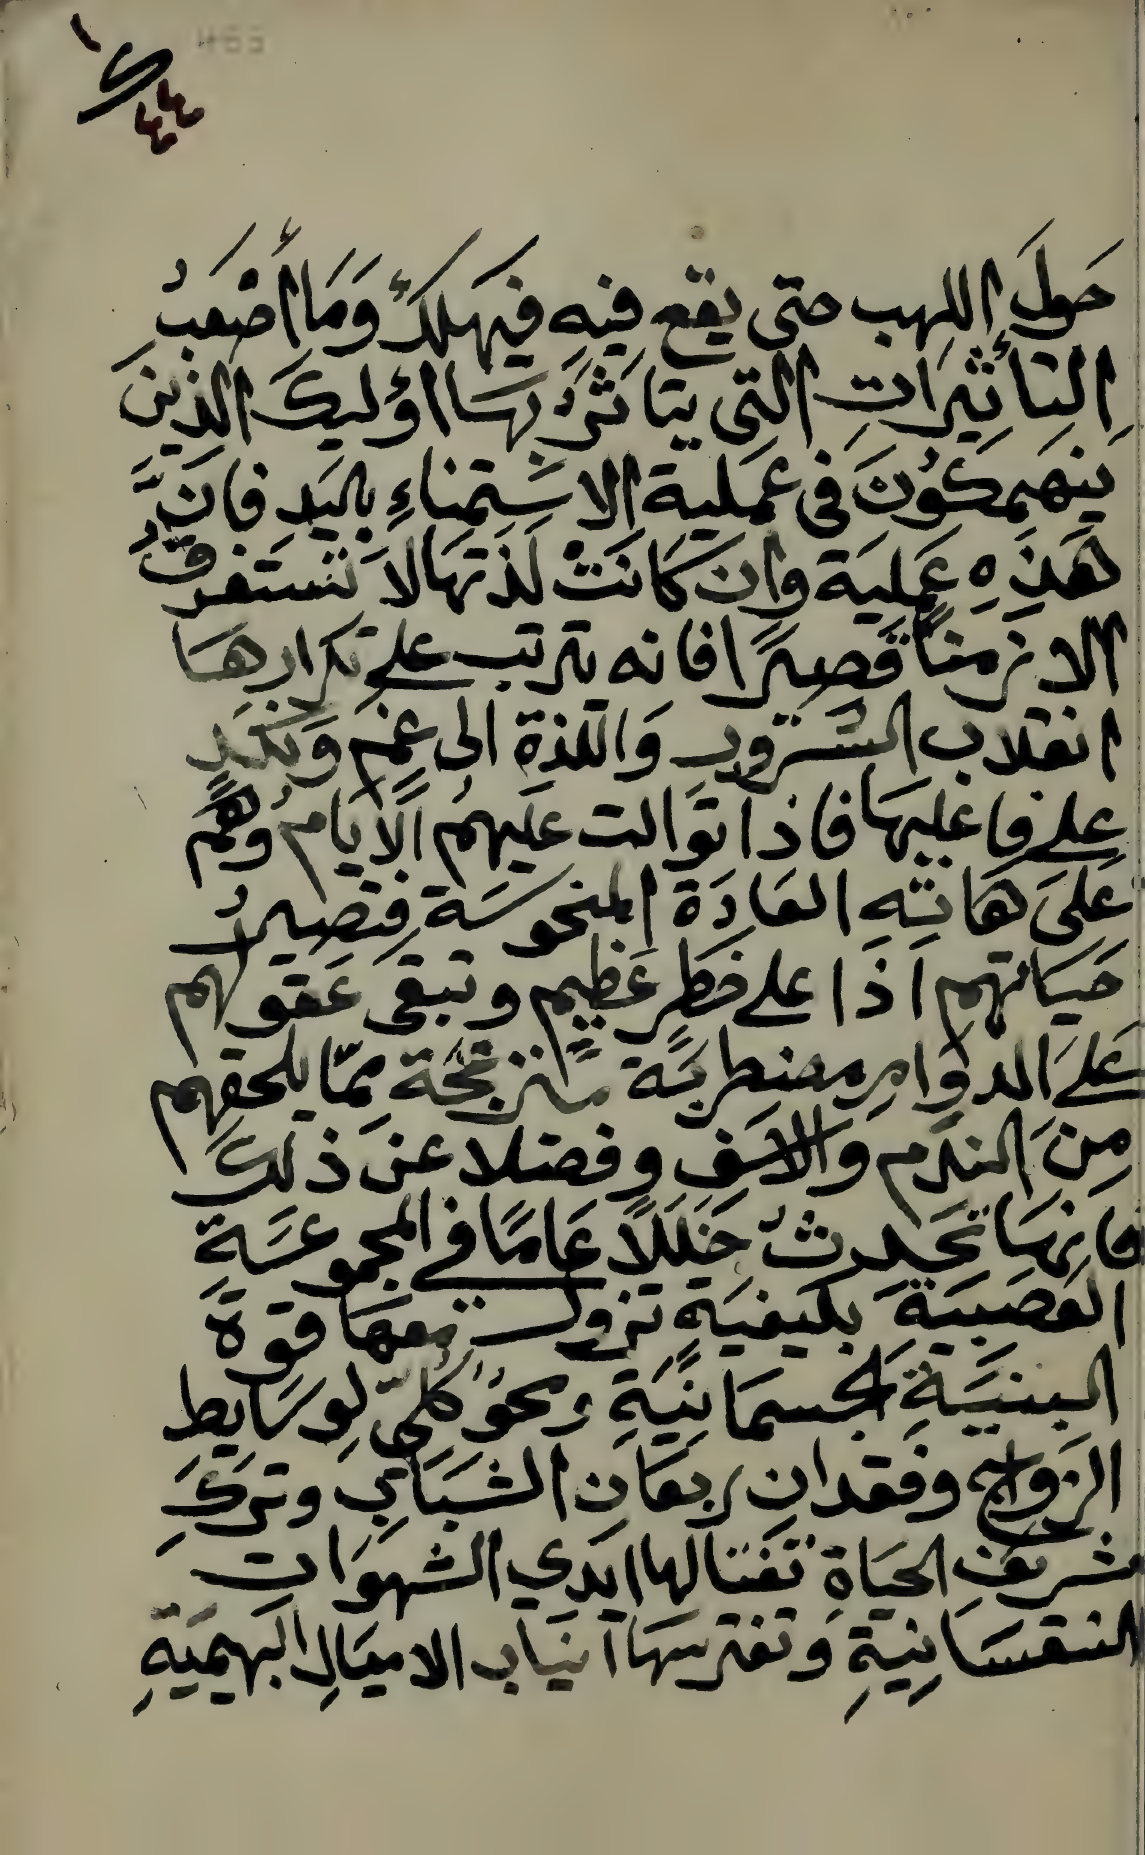 ٤٤
حَولَ اللهب حتى يقع فيه فيهلكُ وَمَا أصْعَبُ
التأثِيرَاتِ التِى يتاثرُ بهَا اؤليكَ الذِينَ
يَنهمكُونَ فى عَمَلية الاسْتِمْناءِ باليَدِ فانَّ
هَذِهِ عَمِليَة وان كَانَتْ لَذتهَا لا تَسْتَغرقُ
الا زمنًا قصِيرًا فانه يترتب على تكرارهَا
انقلاب السُّرُورِ وَاللذة الى غمٍ وَنكَدٍ
على فاعليهَا فاذا توَالت عليهمُ الأيَامُ وَهُم
علىَ هَاتِه العَادَة المنحوسَة فتصِيرُ
حَيَاتهم اذَا على خَطرٍ عَظِيمٍ وتبقى عَقولهم
عَلىَ الدوَامِ مضطربَة منزعجَة ممّا يلحقهم
مِنَ الندَم والاسَفِ وفضلا عَن ذلكَ
فانهَا تحدثُ خَلَلاً عَامًا في المجموعَة
العَصَبيَةَ بكيفيَةٍ تزول معهَا قوة
البنيَةِ الجسمَانيَةِ ومحوُ كُلىّ لِوسَايط
الزوَاج وفقدان ربعَان الشبَابِ وتركَ
شريف الحيَاةِ تغتالها ايدي الشهوَاتِ
النفسَانِيةِ وَتفترسهَا انيَاب الاميَالِ البَهيميَةِ